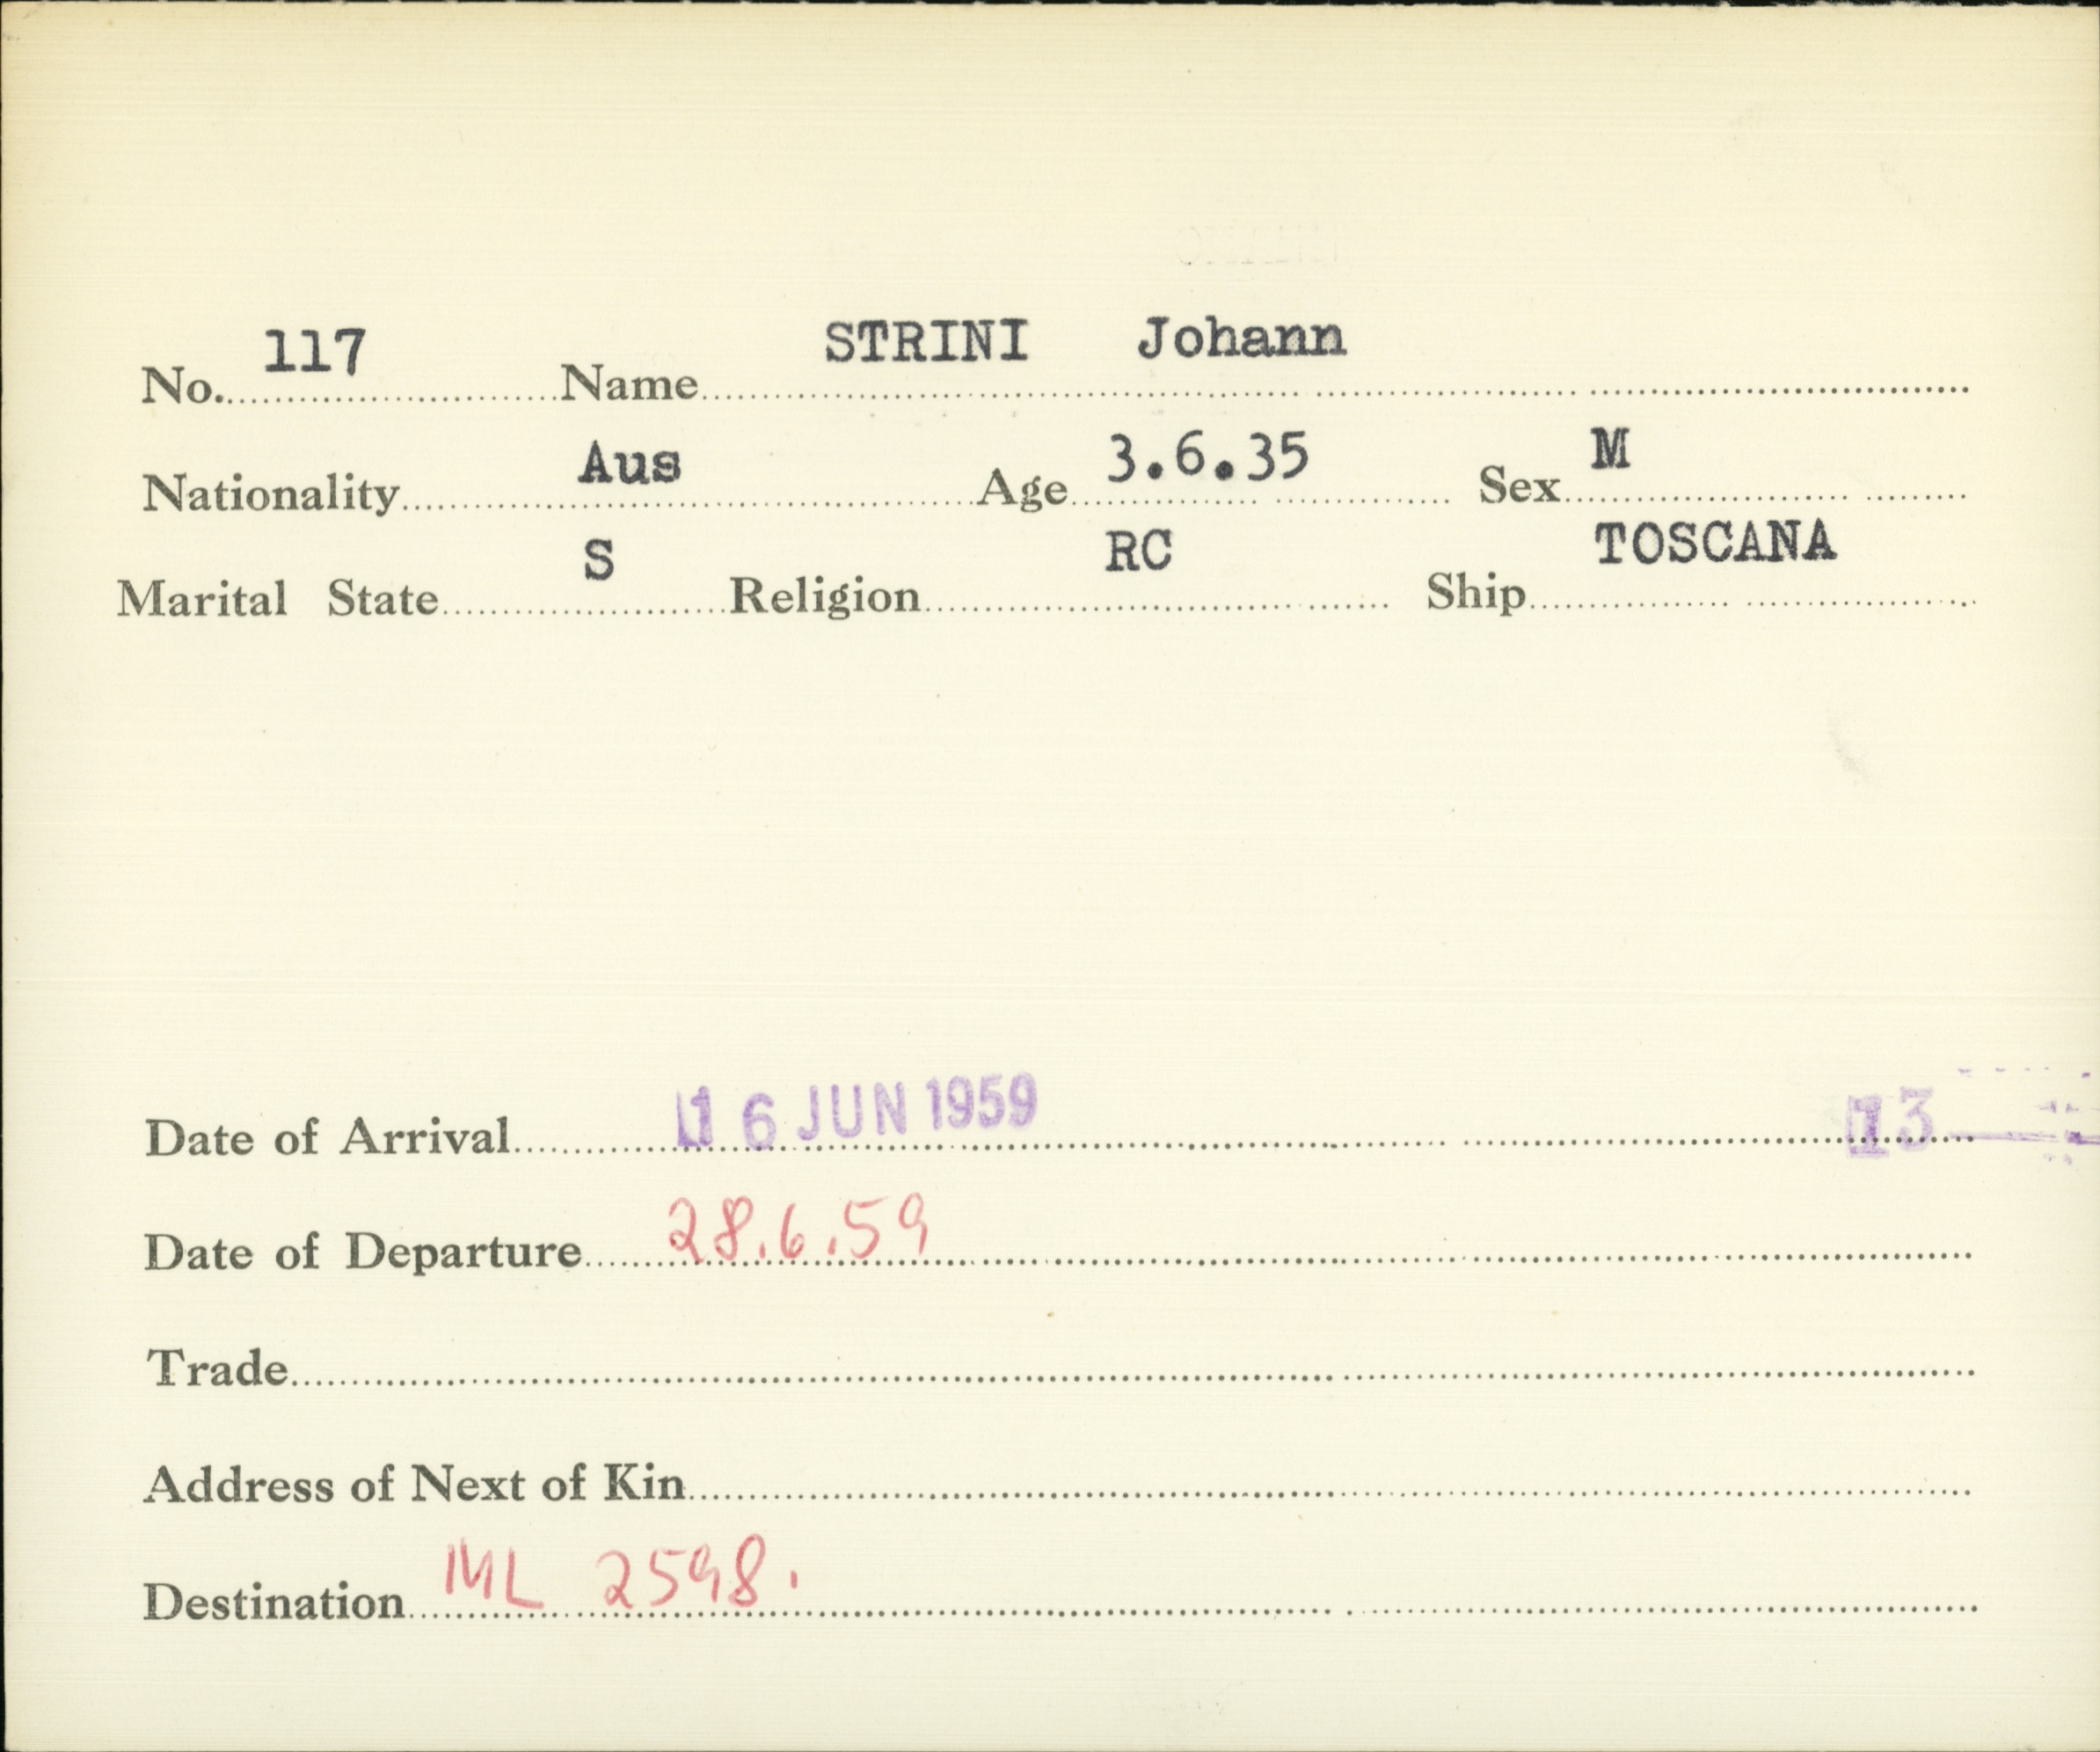 No. 117 Name STRINI Johann
Nationality Aus Age 3.6.35 Sex M
Marital State S Religion RC Ship TOSCANA
Date of Arrival 16 JUN 1959 13
Date of Departure 28.6.59
Trade
Address of Next of Kin
Destination ML 2598.